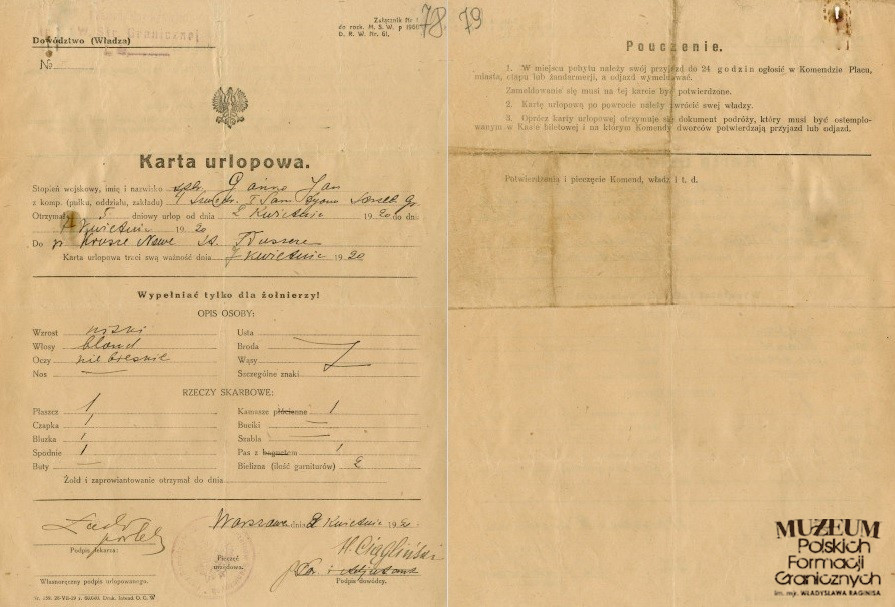 Załącznik Nr 1
do rozk. M. S. W. p 1960
D. R. W. Nr. 61.
78
Dowództwo (Władza)
Granicznej
№
Karta urlopowa.
Stopień wojskowy, imię i nazwisko Jan
z komp. (pułku, oddziału, zakładu)
Otrzymał 5 dniowy urlop od dnia 2 Kwietnia 1920 do dn.
Kwietnia 1920
Do Krosze Nowe
Karta urlopowa traci swą ważność dnia 7 Kwietnia 1920
Wypełniać tylko dla żołnierzy!
OPIS OSOBY:
Wzrost niski
Włosy blond
Oczy niebieskie
Nos —
Usta
Broda
Wąsy
Szczególne znaki
RZECZY SKARBOWE:
Płaszcz 1
Czapka 1
Bluzka 1
Spodnie 1
Buty —
Kamasze płócienne 1
Buciki —
Szabla —
Pas z bagnetem 1
Bielizna (ilość garniturów) 2
Żołd i zaprowiantowanie otrzymał do dnia
Warszawa dnia 2 Kwietnia 1920
Podpis lekarza:
Pieczęć
urzędowa.
H. Ciągliński
Podpis dowódzy.
Własnoręczny podpis urlopowanego.
79
Pouczenie.
1. W miejscu pobytu należy swój przyjazd do 24 godzin ogłosić w Komendzie Placu,
miasta, etapu lub żandarmerji, a odjazd wymeldować.
Zameldowanie się musi na tej karcie być potwierdzone.
2. Kartę urlopową po powrocie należy zwrócić swej władzy.
3. Oprócz karty urlopowej otrzymuje się dokument podróży, który musi być ostemplo-
wanym w Kasie biletowej i na którym Komendy dworców potwierdzają przyjazd lub odjazd.
Potwierdzenia i pieczęcie Komend, władz i t. d.
MUZEUM
Polskich
Formacji
Granicznych
im. mjr. WŁADYSŁAWA RAGINISA